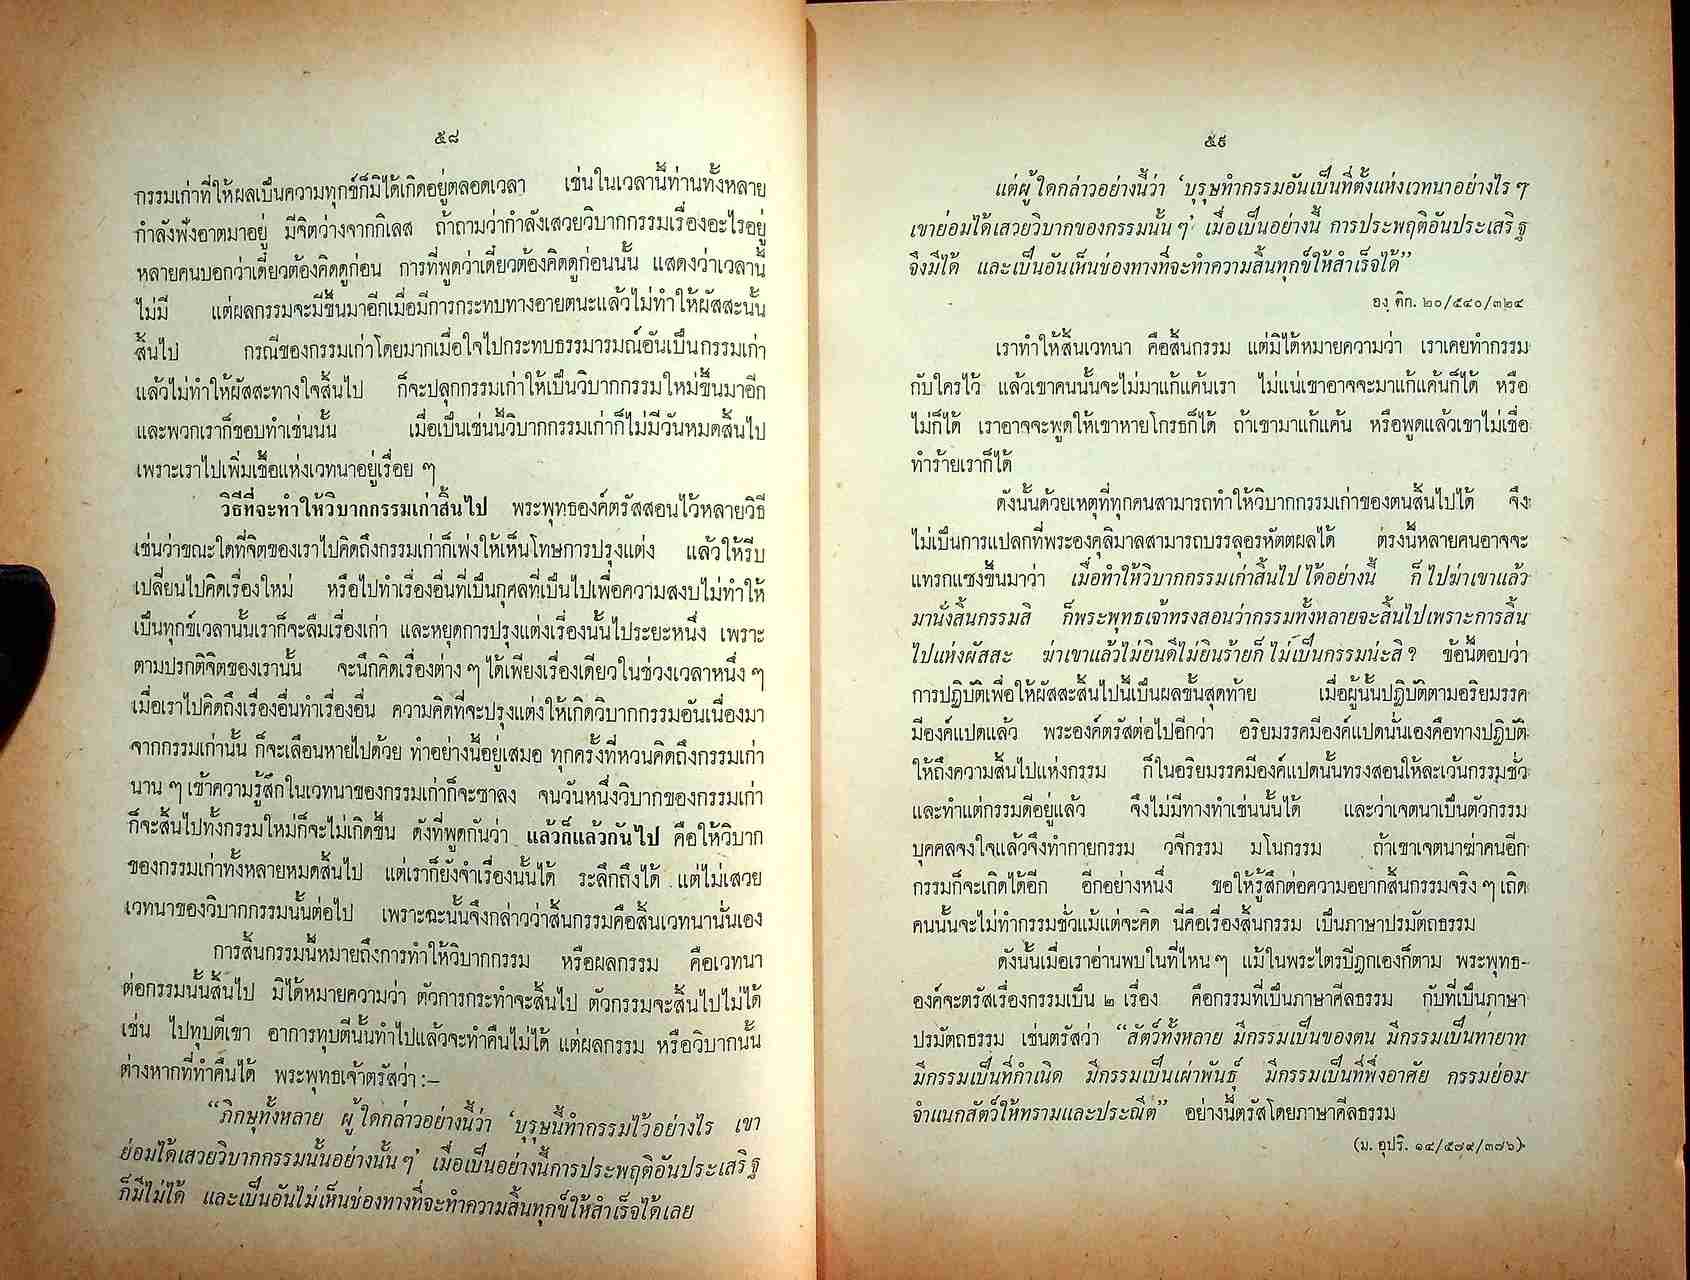 ๕๘
กรรมเก่าที่ให้ผลเป็นความทุกข์ก็มิได้เกิดอยู่ตลอดเวลา เช่นในเวลานี้ท่านทั้งหลาย
กำลังฟังอาตมาอยู่ มีจิตว่างจากกิเลส ถ้าถามว่ากำลังเสวยวิบากกรรมเรื่องอะไรอยู่
หลายคนบอกว่าเดี๋ยวต้องคิดดูก่อน การที่พูดว่าเดี๋ยวต้องคิดดูก่อนนั้น แสดงว่าเวลานี้
ไม่มี แต่ผลกรรมจะมีขึ้นมาอีกเมื่อมีการกระทบทางอายตนะแล้วไม่ทำให้ผัสสะนั้น
สิ้นไป กรณีของกรรมเก่าโดยมากเมื่อใจไปกระทบธรรมารมณ์อันเป็นกรรมเก่า
แล้วไม่ทำให้ผัสสะทางใจสิ้นไป ก็จะปลุกกรรมเก่าให้เป็นวิบากกรรมใหม่ขึ้นมาอีก
และพวกเราก็ชอบทำเช่นนั้น เมื่อเป็นเช่นนี้วิบากกรรมเก่าก็ไม่มีวันหมดสิ้นไป
เพราะเราไปเพิ่มเชื้อแห่งเวทนาอยู่เรื่อย ๆ
วิธีที่จะทำให้วิบากกรรมเก่าสิ้นไป พระพุทธองค์ตรัสสอนไว้หลายวิธี
เช่นว่าขณะใดที่จิตของเราไปคิดถึงกรรมเก่าก็เพ่งให้เห็นโทษการปรุงแต่ง แล้วให้รีบ
เปลี่ยนไปคิดเรื่องใหม่ หรือไปทำเรื่องอื่นที่เป็นกุศลที่เป็นไปเพื่อความสงบไม่ทำให้
เป็นทุกข์เวลานั้นเราก็จะลืมเรื่องเก่า และหยุดการปรุงแต่งเรื่องนั้นไประยะหนึ่ง เพราะ
ตามปรกติจิตของเรานั้น จะนึกคิดเรื่องต่าง ๆ ได้เพียงเรื่องเดียวในช่วงเวลาหนึ่ง ๆ
เมื่อเราไปคิดถึงเรื่องอื่นทำเรื่องอื่น ความคิดที่จะปรุงแต่งให้เกิดวิบากกรรมอันเนื่องมา
จากกรรมเก่านั้น ก็จะเลือนหายไปด้วย ทำอย่างนี้อยู่เสมอ ทุกครั้งที่หวนคิดถึงกรรมเก่า
นาน ๆ เข้าความรู้สึกในเวทนาของกรรมเก่าก็จะซาลง จนวันหนึ่งวิบากของกรรมเก่า
ก็จะสิ้นไปทั้งกรรมใหม่ก็จะไม่เกิดขึ้น ดังที่พูดกันว่า แล้วก็แล้วกันไป คือให้วิบาก
ของกรรมเก่าทั้งหลายหมดสิ้นไป แต่เราก็ยังจำเรื่องนั้นได้ ระลึกถึงได้ แต่ไม่เสวย
เวทนาของวิบากกรรมนั้นต่อไป เพราะฉะนั้นจึงกล่าวว่าสิ้นกรรมคือสิ้นเวทนานั่นเอง
การสิ้นกรรมนี้หมายถึงการทำให้วิบากกรรม หรือผลกรรม คือเวทนา
ต่อกรรมนั้นสิ้นไป มิได้หมายความว่า ตัวการกระทำจะสิ้นไป ตัวกรรมจะสิ้นไปไม่ได้
เช่น ไปทุบตีเขา อาการทุบตีนั้นทำไปแล้วจะทำคืนไม่ได้ แต่ผลกรรม หรือวิบากนั้น
ต่างหากที่ทำคืนได้ พระพุทธเจ้าตรัสว่า :–
“ภิกษุทั้งหลาย ผู้ใดกล่าวอย่างนี้ว่า ‘บุรุษนี้ทำกรรมไว้อย่างไร เขา
ย่อมได้เสวยวิบากกรรมนั้นอย่างนั้น ๆ’ เมื่อเป็นอย่างนี้การประพฤติอันประเสริฐ
ก็มีไม่ได้ และเป็นอันไม่เห็นช่องทางที่จะทำความสิ้นทุกข์ให้สำเร็จได้เลย
๕๙
แต่ผู้ใดกล่าวอย่างนี้ว่า ‘บุรุษทำกรรมอันเป็นที่ตั้งแห่งเวทนาอย่างไร ๆ
เขาย่อมได้เสวยวิบากของกรรมนั้น ๆ’ เมื่อเป็นอย่างนี้ การประพฤติอันประเสริฐ
จึงมีได้ และเป็นอันเห็นช่องทางที่จะทำความสิ้นทุกข์ให้สำเร็จได้”
องฺ ติก. ๒๐/๕๔๐/๓๒๔
เราทำให้สิ้นเวทนา คือสิ้นกรรม แต่มิได้หมายความว่า เราเคยทำกรรม
กับใครไว้ แล้วเขาคนนั้นจะไม่มาแก้แค้นเรา ไม่แน่เขาอาจจะมาแก้แค้นก็ได้ หรือ
ไม่ก็ได้ เราอาจจะพูดให้เขาหายโกรธก็ได้ ถ้าเขามาแก้แค้น หรือพูดแล้วเขาไม่เชื่อ
ทำร้ายเราก็ได้
ดังนั้นด้วยเหตุที่ทุกคนสามารถทำให้วิบากกรรมเก่าของตนสิ้นไปได้ จึง
ไม่เป็นการแปลกที่พระองคุลิมาลสามารถบรรลุอรหัตตผลได้ ตรงนี้หลายคนอาจจะ
แทรกแซงขึ้นมาว่า เมื่อทำให้วิบากกรรมเก่าสิ้นไปได้อย่างนี้ ก็ไปฆ่าเขาแล้ว
มานั่งสิ้นกรรมสิ ก็พระพุทธเจ้าทรงสอนว่ากรรมทั้งหลายจะสิ้นไปเพราะการสิ้น
ไปแห่งผัสสะ ฆ่าเขาแล้วไม่ยินดีไม่ยินร้ายก็ไม่เป็นกรรมน่ะสิ ? ข้อนี้ตอบว่า
การปฏิบัติเพื่อให้ผัสสะสิ้นไปนี้เป็นผลขั้นสุดท้าย เมื่อผู้นั้นปฏิบัติตามอริยมรรค
มีองค์แปดแล้ว พระองค์ตรัสต่อไปอีกว่า อริยมรรคมีองค์แปดนั่นเองคือทางปฏิบัติ
ให้ถึงความสิ้นไปแห่งกรรม ก็ในอริยมรรคมีองค์แปดนั้นทรงสอนให้ละเว้นกรรมชั่ว
และทำแต่กรรมดีอยู่แล้ว จึงไม่มีทางทำเช่นนั้นได้ และว่าเจตนาเป็นตัวกรรม
บุคคลจงใจแล้วจึงทำกายกรรม วจีกรรม มโนกรรม ถ้าเขาเจตนาฆ่าคนอีก
กรรมก็จะเกิดได้อีก อีกอย่างหนึ่ง ขอให้รู้สึกต่อความอยากสิ้นกรรมจริง ๆ เถิด
คนนั้นจะไม่ทำกรรมชั่วแม้แต่จะคิด นี่คือเรื่องสิ้นกรรม เป็นภาษาปรมัตถธรรม
ดังนั้นเมื่อเราอ่านพบในที่ไหน ๆ แม้ในพระไตรปิฎกเองก็ตาม พระพุทธ-
องค์จะตรัสเรื่องกรรมเป็น ๒ เรื่อง คือกรรมที่เป็นภาษาศีลธรรม กับที่เป็นภาษา
ปรมัตถธรรม เช่นตรัสว่า “สัตว์ทั้งหลาย มีกรรมเป็นของตน มีกรรมเป็นทายาท
มีกรรมเป็นที่กำเนิด มีกรรมเป็นเผ่าพันธุ์ มีกรรมเป็นที่พึ่งอาศัย กรรมย่อม
จำแนกสัตว์ให้ทรามและประณีต” อย่างนี้ตรัสโดยภาษาศีลธรรม
(ม. อุปริ. ๑๔/๕๗๙/๓๗๖)